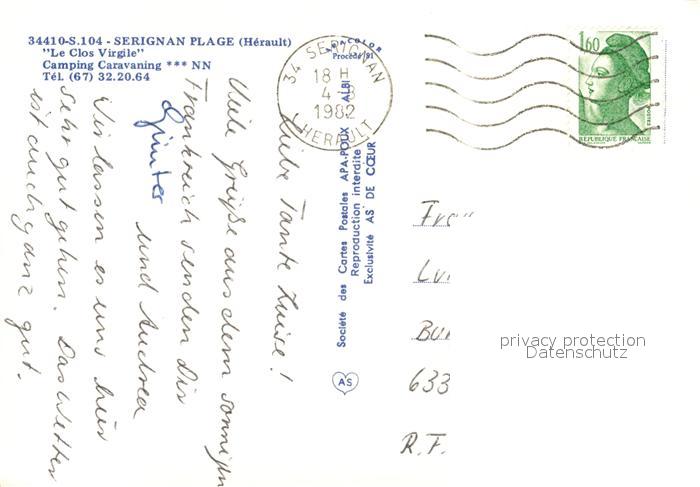 34410-S.104 - SERIGNAN PLAGE (Hérault)
"Le Clos Virgile"
Camping Caravaning *** NN
Tél. (67) 32.20.64
34 SERIGNAN
18 H
4-8
1982
HERAULT
1,60
REPUBLIQUE FRANÇAISE
APACOLOR
Procédé 91
Société des Cartes Postales APA-POUX ALBI
Reproduction interdite
Exclusivité AS DE CŒUR
AS
Liebe Tante Luise!
Viele Grüße aus dem sonnigen
Frankreich senden Dir
Günter und Andrea
Wir lassen es uns hier
sehr gut gehen. Das Wetter
ist auch ganz gut.
633
R.F.
privacy protection
Datenschutz